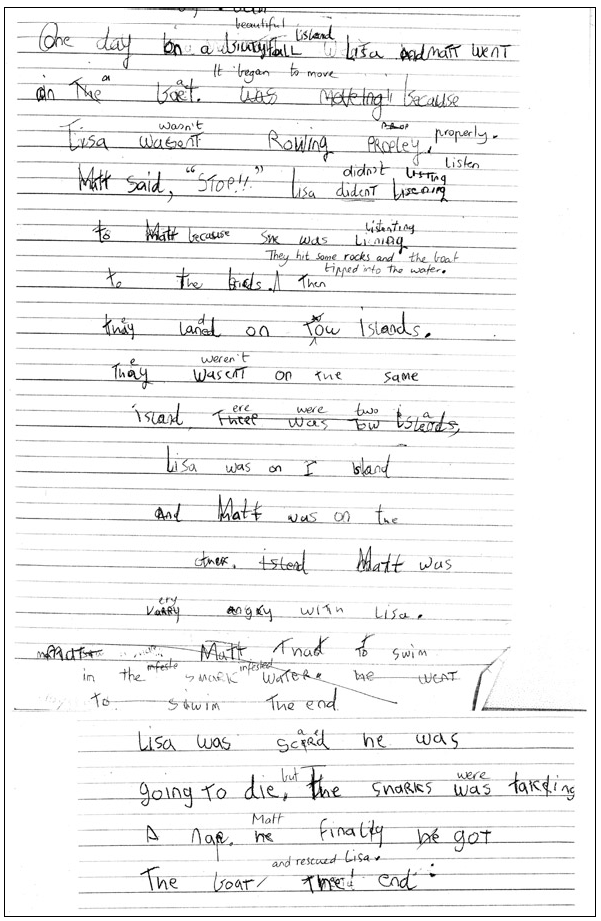 beautiful island
One day on a Lisa and matt went
It began to move
in The boat. was moveing! because
wasn't
Lisa wasent Rowing PROPLEY. properly.
didn't listen
Matt said, "STOP!!" Lisa dident
listenting
to Matt because she was
They hit some rocks and the boat
tipped into the water.
to the birds. Then
they landed on tow islands.
weren't
they wasent on the same
ere were two
island, Three was tow islands,
Lisa was on 1 island
And Matt was on the
other. island Matt was
ery
varry angry with Lisa.
Matt Triad to swim
infeste infested
in the SHARK WATER. he WENT
To swim The end
Lisa was scared he was
but were
going to die, The sharks was takeing
Matt
A nap. he finally he got
and rescued Lisa.
The boat/ The end